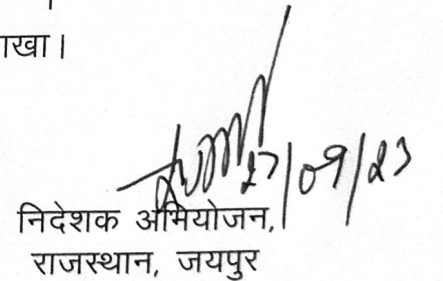 ाखा।
27/09/23
निदेशक अभियोजन,
राजस्थान, जयपुर